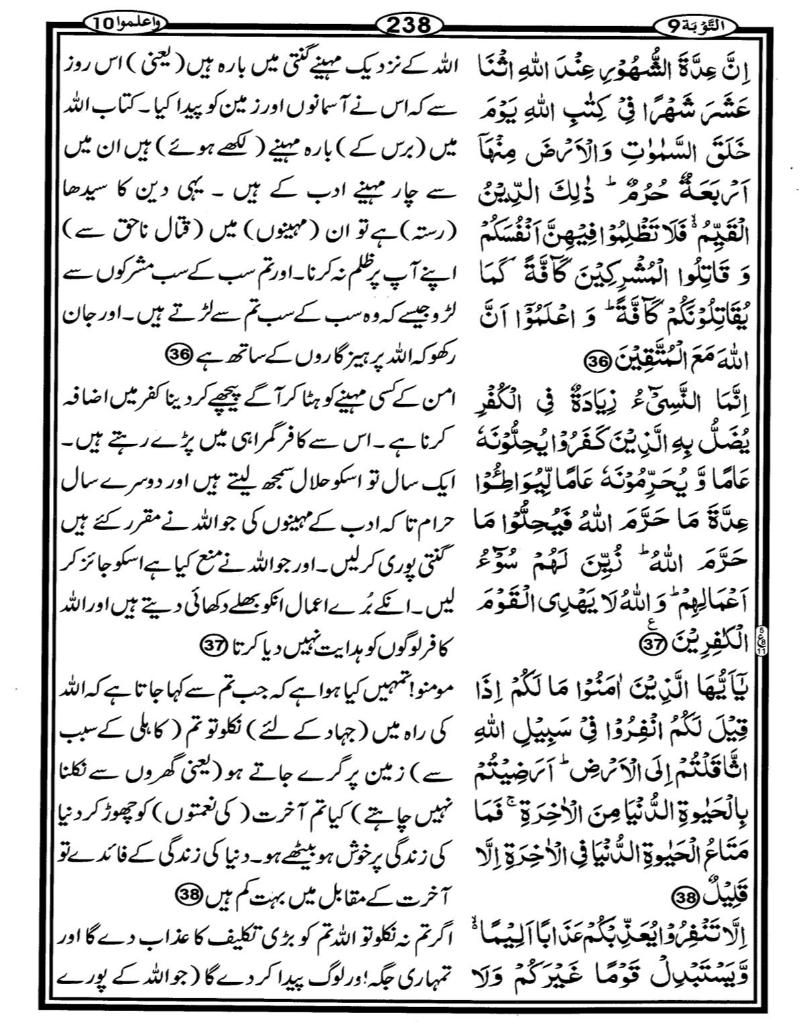 التَّوۡبَة 9 238 واعلموا 10
اِنَّ عِدَّةَ الشُّهُوۡرِ عِنۡدَ اللّٰهِ اثۡنَا
عَشَرَ شَهۡرًا فِىۡ كِتٰبِ اللّٰهِ يَوۡمَ
خَلَقَ السَّمٰوٰتِ وَالۡاَرۡضَ مِنۡهَاۤ
اَرۡبَعَةٌ حُرُمٌ‌ؕ ذٰلِكَ الدِّيۡنُ
الۡقَيِّمُ ۙ فَلَا تَظۡلِمُوۡا فِيۡهِنَّ اَنۡفُسَكُمۡ
وَ قَاتِلُوا الۡمُشۡرِكِيۡنَ كَآفَّةً كَمَا
يُقَاتِلُوۡنَكُمۡ كَآفَّةً‌ؕ وَ اعۡلَمُوۡۤا اَنَّ
اللّٰهَ مَعَ الۡمُتَّقِيۡنَ 36
اِنَّمَا النَّسِىۡٓءُ زِيَادَةٌ فِى الۡكُفۡرِ
يُضَلُّ بِهِ الَّذِيۡنَ كَفَرُوۡا يُحِلُّوۡنَهٗ
عَامًا وَّ يُحَرِّمُوۡنَهٗ عَامًا لِّيُوَاطِـُٔوۡا
عِدَّةَ مَا حَرَّمَ اللّٰهُ فَيُحِلُّوۡا مَا
حَرَّمَ اللّٰهُ‌ؕ زُيِّنَ لَهُمۡ سُوۡۤءُ
اَعۡمَالِهِمۡ‌ؕ وَاللّٰهُ لَا يَهۡدِى الۡقَوۡمَ
الۡـكٰفِرِيۡنَ 37
يٰۤاَيُّهَا الَّذِيۡنَ اٰمَنُوۡا مَا لَـكُمۡ اِذَا
قِيۡلَ لَـكُمُ انْفِرُوۡا فِىۡ سَبِيۡلِ اللّٰهِ
اثَّاقَلۡتُمۡ اِلَى الۡاَرۡضِ‌ؕ اَرَضِيۡتُمۡ
بِالۡحَيٰوةِ الدُّنۡيَا مِنَ الۡاٰخِرَةِ‌ۚ فَمَا
مَتَاعُ الۡحَيٰوةِ الدُّنۡيَا فِى الۡاٰخِرَةِ اِلَّا
قَلِيۡلٌ 38
اِلَّا تَنۡفِرُوۡا يُعَذِّبۡكُمۡ عَذَابًا اَلِيۡمًا ۙ
وَّيَسۡتَبۡدِلۡ قَوۡمًا غَيۡرَكُمۡ وَلَا
اللہ کے نزدیک مہینے گنتی میں بارہ ہیں (یعنی) اس روز
سے کہ اس نے آسمانوں اور زمین کو پیدا کیا۔ کتاب اللہ
میں (برس کے) بارہ مہینے (لکھے ہوئے) ہیں ان میں
سے چار مہینے ادب کے ہیں ۔ یہی دین کا سیدھا
(رستہ) ہے تو ان (مہینوں) میں (قتال ناحق سے)
اپنے آپ پر ظلم نہ کرنا۔ اور تم سب کے سب مشرکوں سے
لڑو جیسے کہ وہ سب کے سب تم سے لڑتے ہیں۔ اور جان
رکھو کہ اللہ پرہیزگاروں کے ساتھ ہے 36
امن کے کسی مہینے کو ہٹا کر آگے پیچھے کر دینا کفر میں اضافہ
کرنا ہے۔ اس سے کافر گمراہی میں پڑے رہتے ہیں۔
ایک سال تو اسکو حلال سمجھ لیتے ہیں اور دوسرے سال
حرام تاکہ ادب کے مہینوں کی جو اللہ نے مقرر کئے ہیں
گنتی پوری کر لیں۔ اور جو اللہ نے منع کیا ہے اسکو جائز کر
لیں۔ انکے بُرے اعمال انکو بھلے دکھائی دیتے ہیں اور اللہ
کافر لوگوں کو ہدایت نہیں دیا کرتا 37
مومنو! تمہیں کیا ہوا ہے کہ جب تم سے کہا جاتا ہے کہ اللہ
کی راہ میں (جہاد کے لئے) نکلو تو تم (کاہلی کے سبب
سے) زمین پر گرے جاتے ہو (یعنی گھروں سے نکلنا
نہیں چاہتے) کیا تم آخرت (کی نعمتوں) کو چھوڑ کر دنیا
کی زندگی پر خوش ہو بیٹھے ہو۔ دنیا کی زندگی کے فائدے تو
آخرت کے مقابل میں بہت کم ہیں 38
اگر تم نہ نکلو تو اللہ تم کو بڑی تکلیف کا عذاب دے گا اور
تمہاری جگہ اور لوگ پیدا کر دے گا (جو اللہ کے پورے